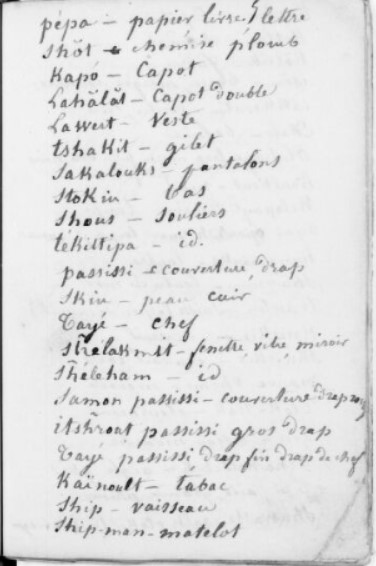 pépa – papier livre lettre
shŏt – chemise plomb
Kapó – Capot
Lahălăt – Capot double
Lawest – Veste
tshakit – gilet
Sakalouks – pantalons
Stokin – bas
Shous – Souliers
tékittipa – id.
passissi – couverture, drap
Skin – peau cuir
Tayé – chef
shelakmit – fenetre vitre miroir
Shéleham – id
Samon passissi – couverture drap
itshroat passissi gros drap
Tayé passissi drap fin drap de chef
Kaïnoult – tabac
Ship – vaisseau
Ship-man – matelot